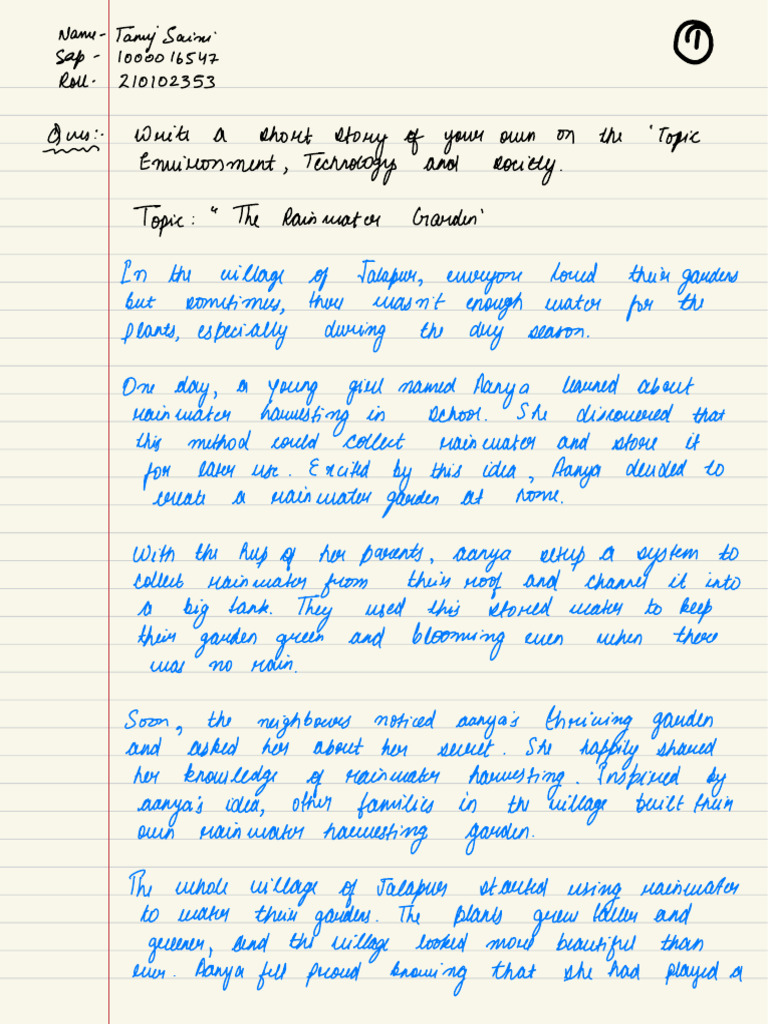 Name- Tanuj Saini
①
Sap - 1000016547
Roll- 210102353
Ques:- Write a short story of your own on the 'Topic
Environment, Technology and society.
Topic: "The Rainwater Garden'
In the village of Jalapur, everyone loved their gardens
but sometimes, there wasn't enough water for the
plants, especially during the dry season.
One day, a young girl named Aanya learned about
rainwater harvesting in school. She discovered that
this method could collect rainwater and store it
for later use. Excited by this idea, Aanya decided to
create a rainwater garden at home.
With the help of her parents, aanya setup a system to
collect rainwater from their roof and channel it into
a big tank. They used this stored water to keep
their garden green and blooming even when there
was no rain.
Soon, the neighbours noticed aanya's thriving garden
and asked her about her secret. She happily shared
her knowledge of rainwater harvesting. Inspired by
aanya's idea, other families in the village built their
own rainwater harvesting garden.
The whole village of Jalapur started using rainwater
to water their gardens. The plants grew taller and
greener, and the village looked more beautiful than
ever. Aanya felt proud knowing that she had played a